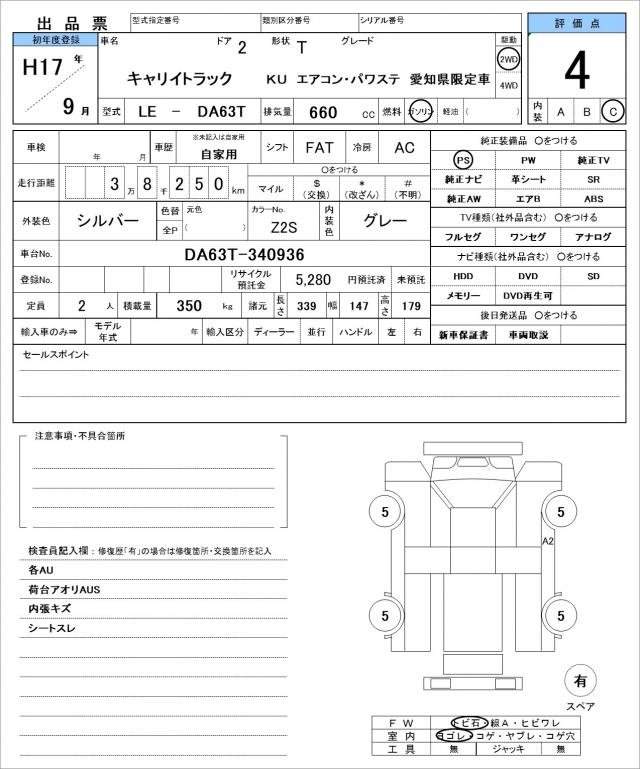 出品票 型式指定番号 類別区分番号 シリアル番号 評価点
初年度登録 車名 ドア 2 形状 T グレード 駆動
H17年 キャリイトラック KU エアコン・パワステ 愛知県限定車 2WD 4
4WD
9月 型式 LE － DA63T 排気量 660 cc 燃料 ガソリン 軽油 ( ) 内装 A B C
車検 年 月 車歴 ※未記入は自家用 自家用 シフト FAT 冷房 AC 純正装備品 〇をつける
PS PW 純正TV
走行距離 3万8千250km 〇をつける
マイル $(交換) *(改ざん) #(不明) 純正ナビ 革シート SR
純正AW エアB ABS
外装色 シルバー 色替 元色 カラーNo. 内装色 グレー TV種類(社外品含む) 〇をつける
全P ( ) Z2S フルセグ ワンセグ アナログ
車台No. DA63T-340936 ナビ種類(社外品含む) 〇をつける
登録No. リサイクル預託金 5,280 円預託済 未預託 HDD DVD SD
定員 2 人 積載量 350 kg 諸元 長さ 339 幅 147 高さ 179 メモリー DVD再生可
後日発送品 〇をつける
輸入車のみ⇒ モデル年式 年 輸入区分 ディーラー 並行 ハンドル 左 右 新車保証書 車両取説
セールスポイント
注意事項・不具合箇所
5 5
A2
検査員記入欄：修復歴「有」の場合は修復箇所・交換箇所を記入
各AU
荷台アオリAUS
内張キズ
シートスレ
5 5
有
スペア
FW トビ石・線A・ヒビワレ
室内 ヨゴレ・コゲ・ヤブレ・コゲ穴
工具 無 ジャッキ 無